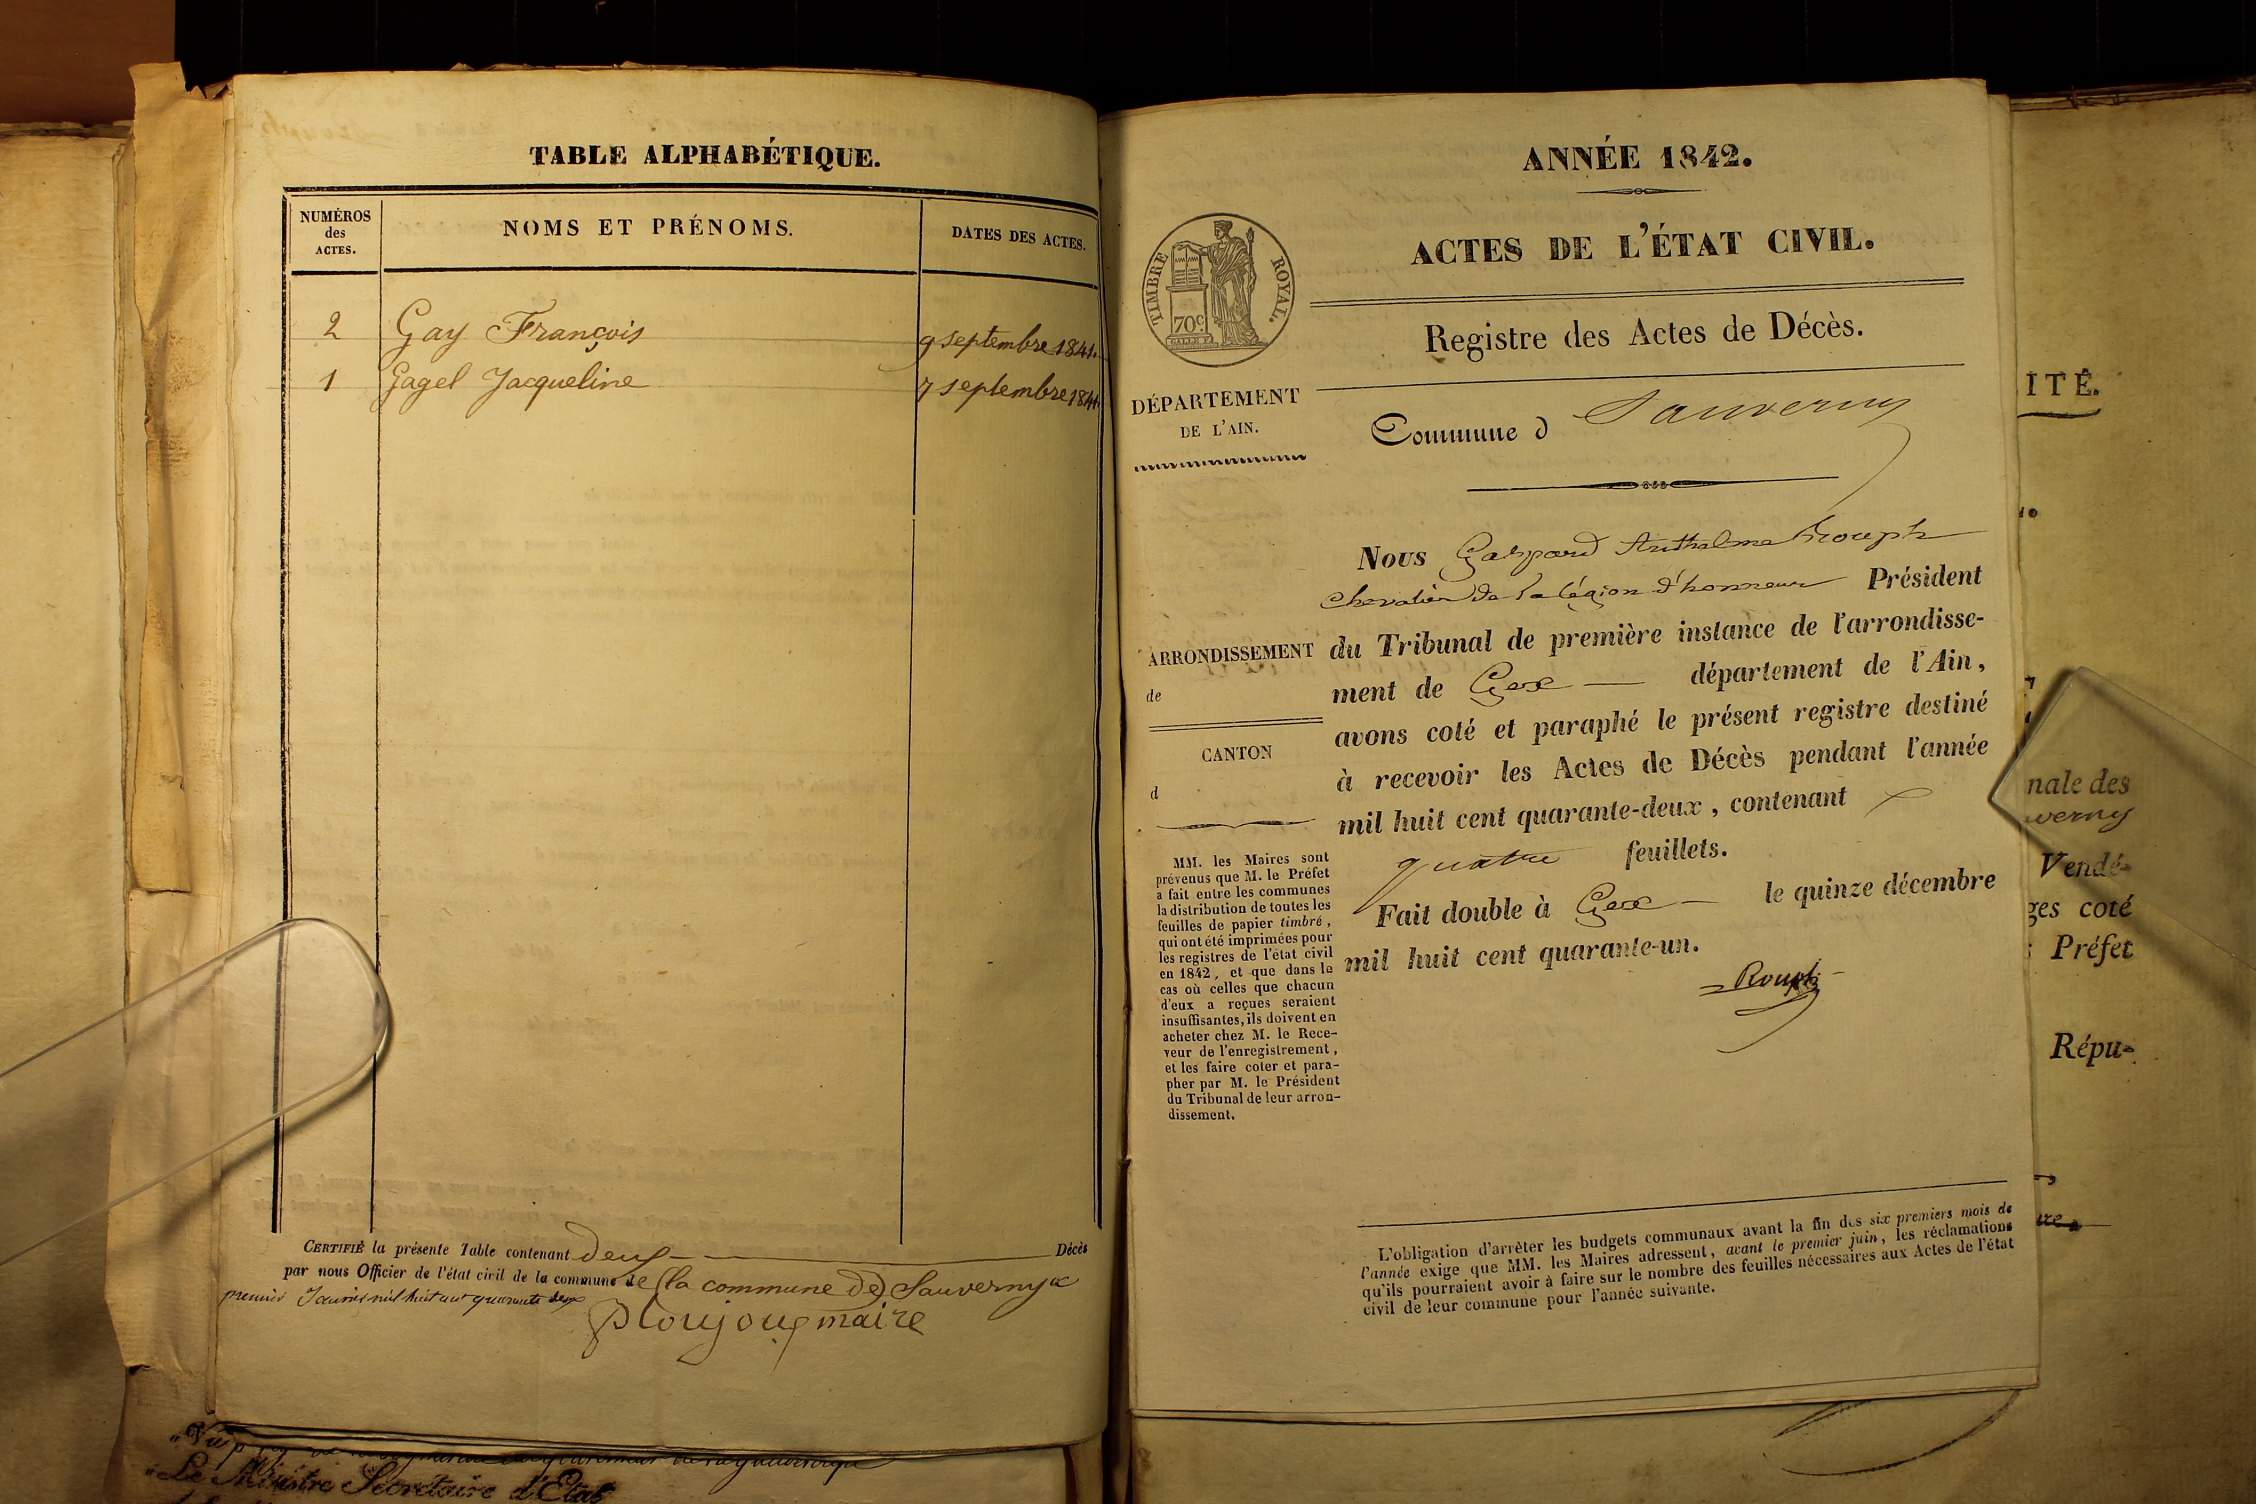 TABLE ALPHABÉTIQUE.
NUMÉROS
des
ACTES.
NOMS ET PRÉNOMS.
DATES DES ACTES.
2 Gay François 9 septembre 1841.
1 Gagel Jacqueline 7 septembre 1841.
CERTIFIÉ la présente Table contenant deux Décès
par nous Officier de l'état civil de la commune de (la commune de) Sauverny le
premier Janvier mil huit cent quarante deux
maire
ANNÉE 1842.
ACTES DE L'ÉTAT CIVIL.
TIMBRE ROYAL.
70c
Registre des Actes de Décès.
DÉPARTEMENT
DE L'AIN.
Commune d Sauverny
Nous Gaspard Anthelme Rouph
chevalier de la légion d'honneur Président
du Tribunal de première instance de l'arrondisse-
ment de Gex — département de l'Ain,
avons coté et paraphé le présent registre destiné
à recevoir les Actes de Décès pendant l'année
mil huit cent quarante-deux, contenant
quatre feuillets.
Fait double à Gex — le quinze décembre
mil huit cent quarante-un.
Rouph
ARRONDISSEMENT
de
CANTON
d
MM. les Maires sont
prévenus que M. le Préfet
a fait entre les communes
la distribution de toutes les
feuilles de papier timbré,
qui ont été imprimées pour
les registres de l'état civil
en 1842, et que dans le
cas où celles que chacun
d'eux a reçues seraient
insuffisantes, ils doivent en
acheter chez M. le Rece-
veur de l'enregistrement,
et les faire coter et para-
pher par M. le Président
du Tribunal de leur arron-
dissement.
L'obligation d'arrêter les budgets communaux avant la fin des six premiers mois de
l'année exige que MM. les Maires adressent, avant le premier juin, les réclamations
qu'ils pourraient avoir à faire sur le nombre des feuilles nécessaires aux Actes de l'état
civil de leur commune pour l'année suivante.
ITÉ.
nale des
verny
Vendé-
ges coté
Préfet
Répu-
Le Ministre Secrétaire d'Etat